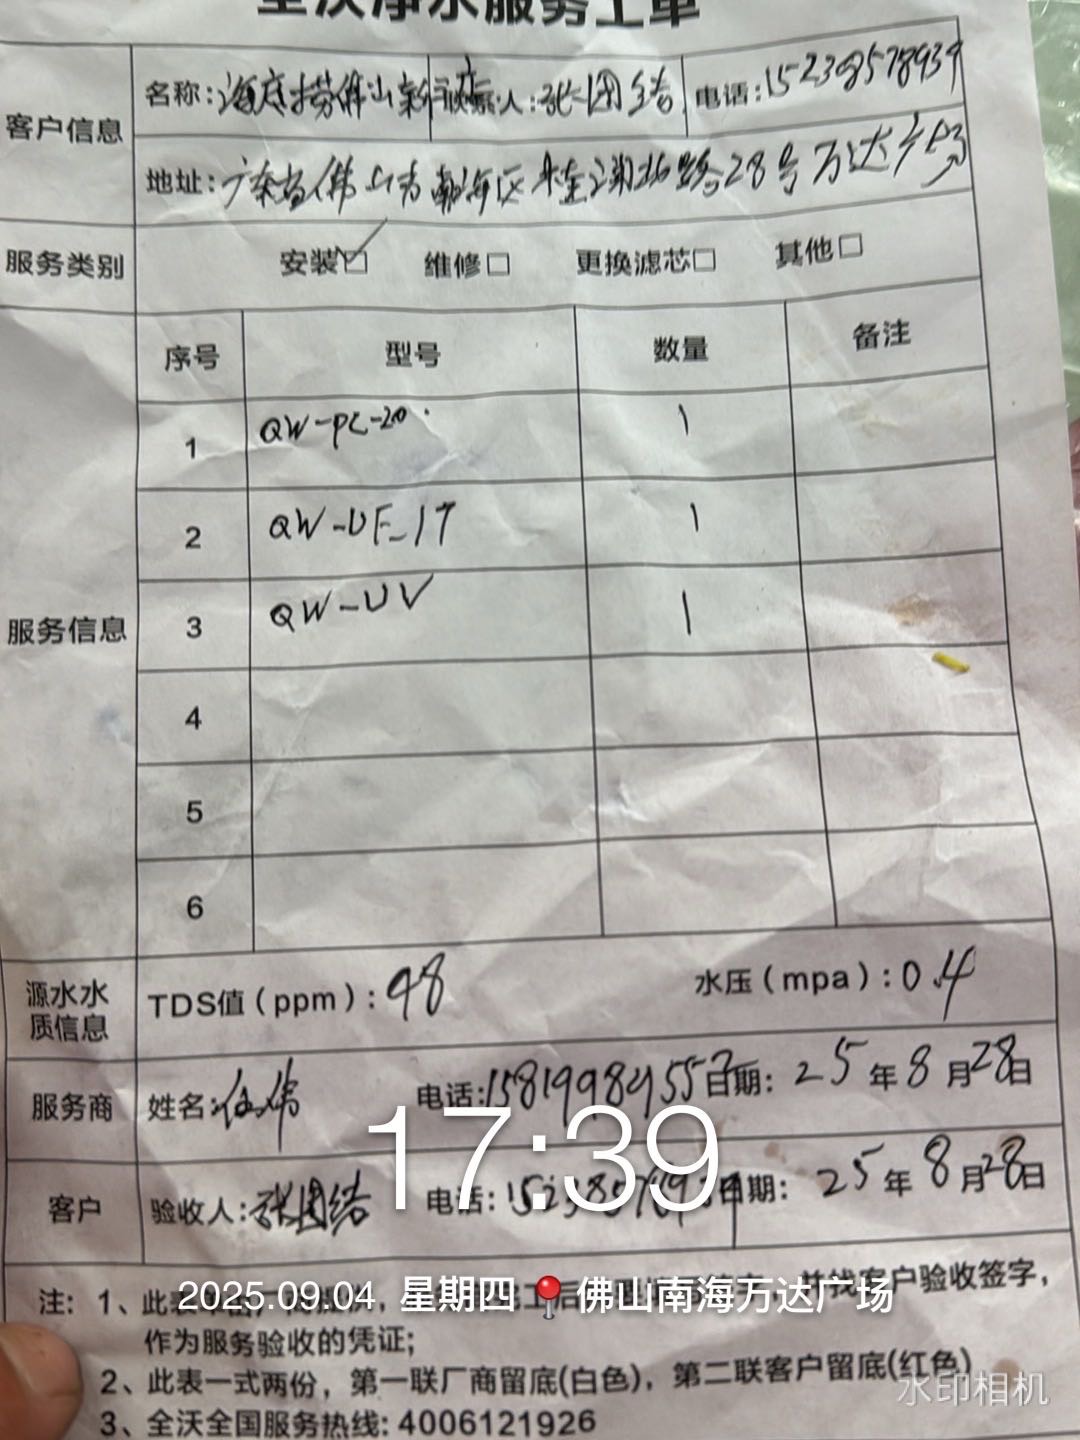 全沃净水服务工单
客户信息
名称：海底捞佛山新店 联系人：张团结 电话：15238578939
地址：广东省佛山市南海区桂澜北路28号万达广场
服务类别 安装☑ 维修□ 更换滤芯□ 其他□
服务信息
序号 型号 数量 备注
1 QW-PC-20 1
2 QW-UF-1T 1
3 QW-UV 1
4
5
6
源水水质信息 TDS值（ppm）：98 水压（mpa）：0.4
服务商 姓名：任伟 电话： 日期：25年8月28日
17:39
客户 验收人：张团结 电话： 日期：25年8月28日
2025.09.04 星期四 佛山南海万达广场
注：1、此 并找客户验收签字，
作为服务验收的凭证；
2、此表一式两份，第一联厂商留底(白色)，第二联客户留底(红色)
3、全沃全国服务热线：4006121926
水印相机